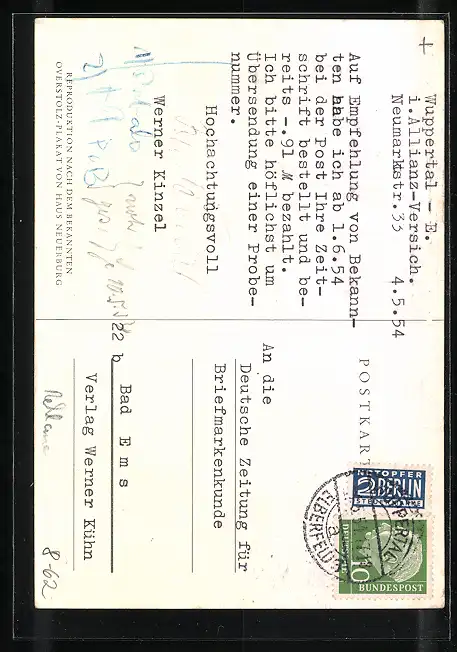 Wuppertal - E.
i.Allianz-Versich.
Neumarktstr.33    4.5.54
Auf Empfehlung von Bekann-
ten habe ich ab 1.6.54
bei der Post Ihre Zeit-
schrift bestellt und be-
reits -.91 M bezahlt.
Ich bitte höflichst um
Übersendung einer Probe-
nummer.
Hochachtungsvoll
Werner Kinzel
REPRODUKTION NACH DEM BEKANNTEN
OVERSTOLZ-PLAKAT VON HAUS NEUERBURG
POSTKART
NOTOPFER
2 BERLIN
STEUERMARKE
WUPPERTAL
ELBERFELD
a
10
DEUTSCHE
BUNDESPOST
An die
Deutsche Zeitung für
Briefmarkenkunde
22 b
Bad Ems
Verlag Werner Kühn
Reklame
8-62